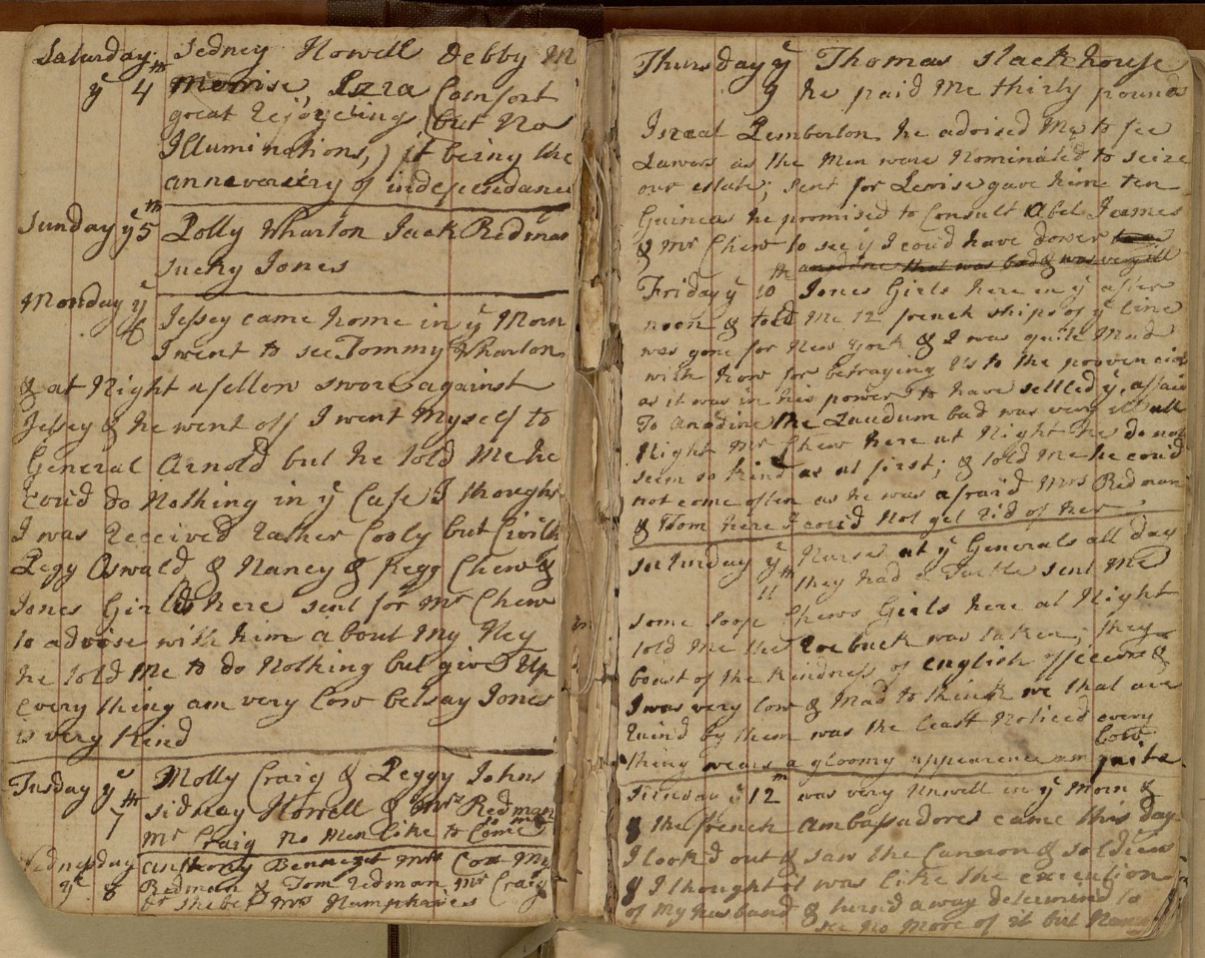 Saturday Sedney Howell Debby M
yᵉ 4th Morrise, Ezra Comfort
great Rejoyceing (but No
Illuminations,) it being the
anneversery of independance
Sunday yᵉ 5th Polly Wharton Jack Redman
Sucky Jones
Monday yᵉ
6 Jessey came home in yᵉ Morn
I went to see Tommy Wharton
& at Night a fellow swore against
Jessey & he went off I went Myself to
General Arnold but he told Me he
Coud do Nothing in yᵉ Case I thought
I was Received Rather Cooly but Civilly
Pegy Oswald & Nancy & Pegg Chew &
Jones Girls here sent for Mr Chew
to advise with him about My
he told Me to do Nothing but give Up
every thing am very Low betsay Jones
is very Kind
Tusday yᵉ Molly Craig & Peggy Johns
7th Sidney Howell & Mrs Redman
Mr Craig No Men like to Come
Wednesday anthony Bennezet Mrs Cox Mrs
yᵉ 8 Redman & Tom Redman Mr Craig
Mrs Humphries
Thursday yᵉ Thomas Stackhouse
9 he paid Me thirty pound
Israel Pemberton he advised Me to see
Lawers as the Men were Nominated to seize
our estate; sent for Lewise gave hime ten
Guineas he promised to Consult Abel Jeames
& Mr Chew to see if I coud have dower
anodine that was bad & was very ill
Friday yᵉ 10th Jones Girls here in yᵉ after
noon & told Me 12 french ships of yᵉ line
was gone for New York & I was quite Mad
with how for betraying Us to the provencials
as it was in his power to have settled yᵉ affair
To Anodine the Laudum bad was very ill all
Night Mr Chew here at Night he do not
seem so kind as at first; & told Me he coud
not come often as he was afraid Mrs Redman
& Tom here I coud Not get Rid of her
Saturday yᵉ Nurse at yᵉ Generals all day
11th they had a Turtle sent Me
some soop Chews Girls here at Night
told Me the Roebuck was taken; they
boast of the kindness of english officeers &
I was very low & Mad to think we that are
Ruind by them was the least Noticed every
thing wears a gloomy appearence am quite Low
Sunday yᵉ 12th was very Unwell in yᵉ Morn &
& the french Ambassadores came this day
I look'd out & saw the Cannon & soldiers
& I thought it was like the execution
of My husband & turnd away determind to
see No More of it but Nancy